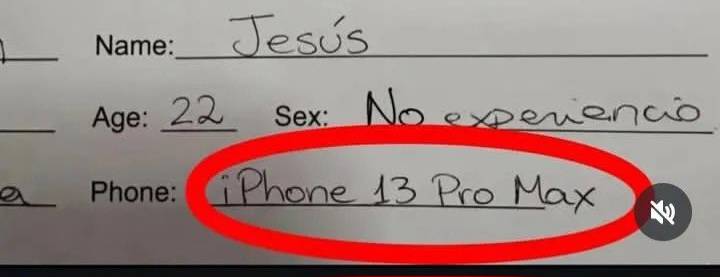 Name: Jesús
Age: 22 Sex: No experiencio
Phone: iPhone 13 Pro Max